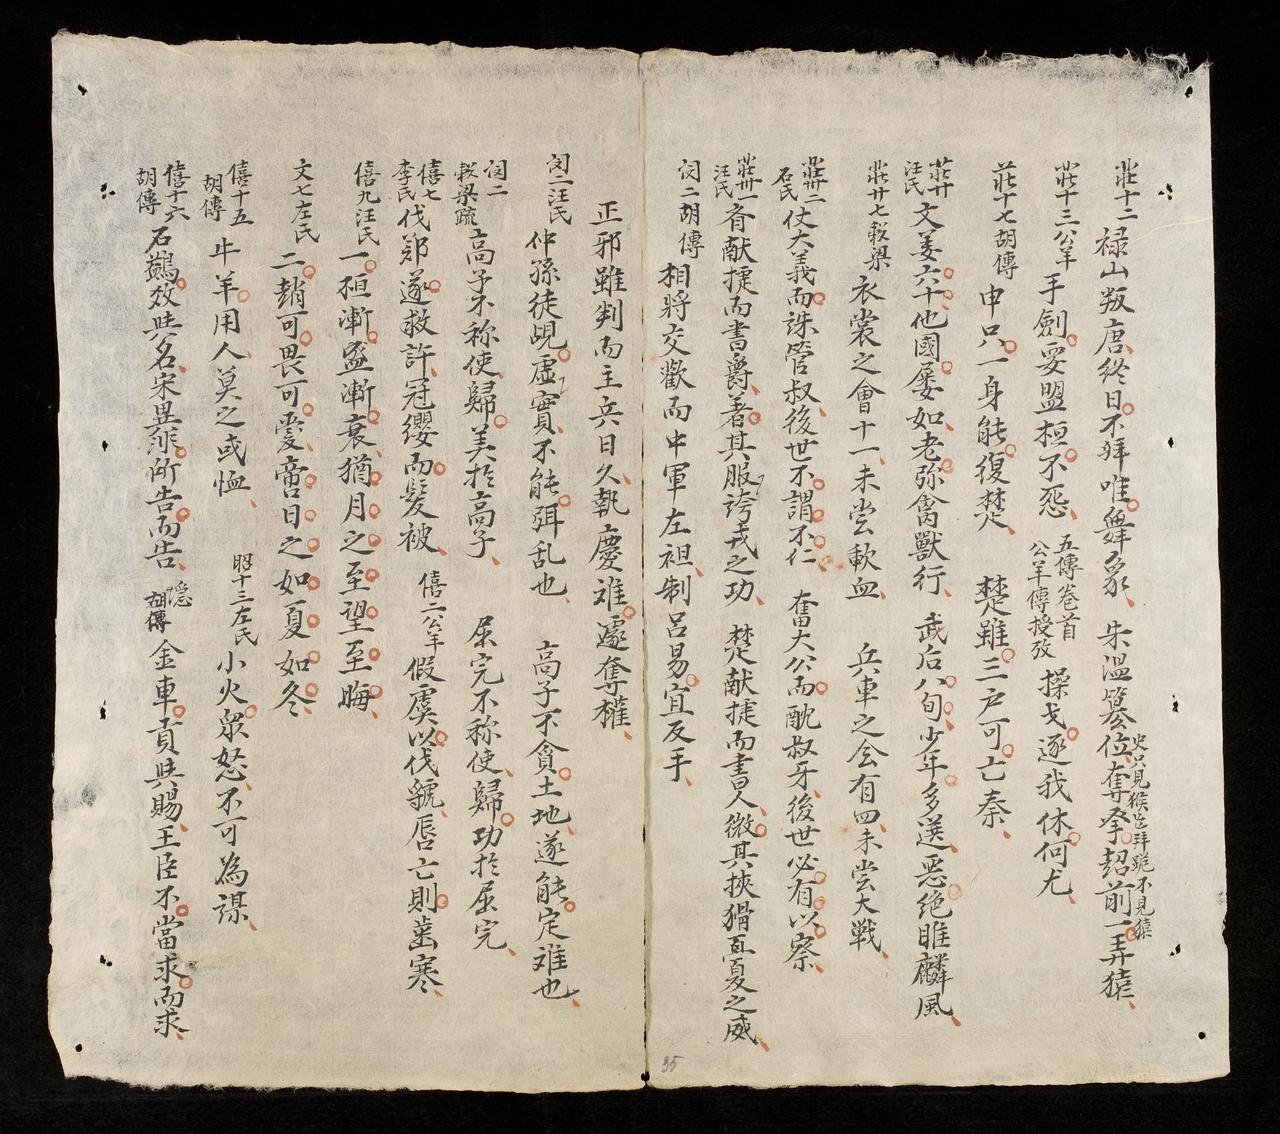 莊十二 禄山叛唐終日不拜唯舞象 朱溫簒位奪孥詔前一弄猿
史只見猴丗拜跪不見猿
莊十三公羊 手劍要盟桓不怨 五傳卷首 公羊傳授攷 操戈逐我休何尤
莊十七胡傳 申只一身能復楚 楚雖三户可亡秦
莊廿 汪氏 文姜六十他國屡如老弥禽獸行 武后八旬少年多選惡绝睢麟風
莊廿七穀梁 衣裳之會十一未尝歃血 兵車之会有四未尝大戦
莊卅二 石氏 仗大義而誅管叔後世不謂不仁 奮大公而酖叔牙後世必有以察
莊卅一 汪氏 斉献捷而書爵著其服誇戎之功 楚献捷而書人微其挾猾夏之威
閔二胡傳 相將交歡而中軍左袒制呂易宜反手
正邪雖判而主兵日久執慶难遽奪權
閔二汪氏 仲孫徒覘虚實不能弭乱也 高子不貪土地遂能定难也
閔二 穀梁疏 高子不称使歸美於高子 屈完不称使歸功於屈完
僖七 李氏 伐郑遂救許冠纓而髮被 僖二公羊 假虞以伐虢唇亡則齒寒
僖九汪氏 一桓漸盛漸衰猶月之至望至晦
文七左氏 二趙可畏可愛啻日之如夏如冬
僖十五 胡傳 牛羊用人莫之或恤 昭十三左氏 小火眾怒不可為謀
僖十六 胡傳 石鷁效異名宋異非所告而告 隱 胡傳 金車貢與賜王臣不當求而求
35